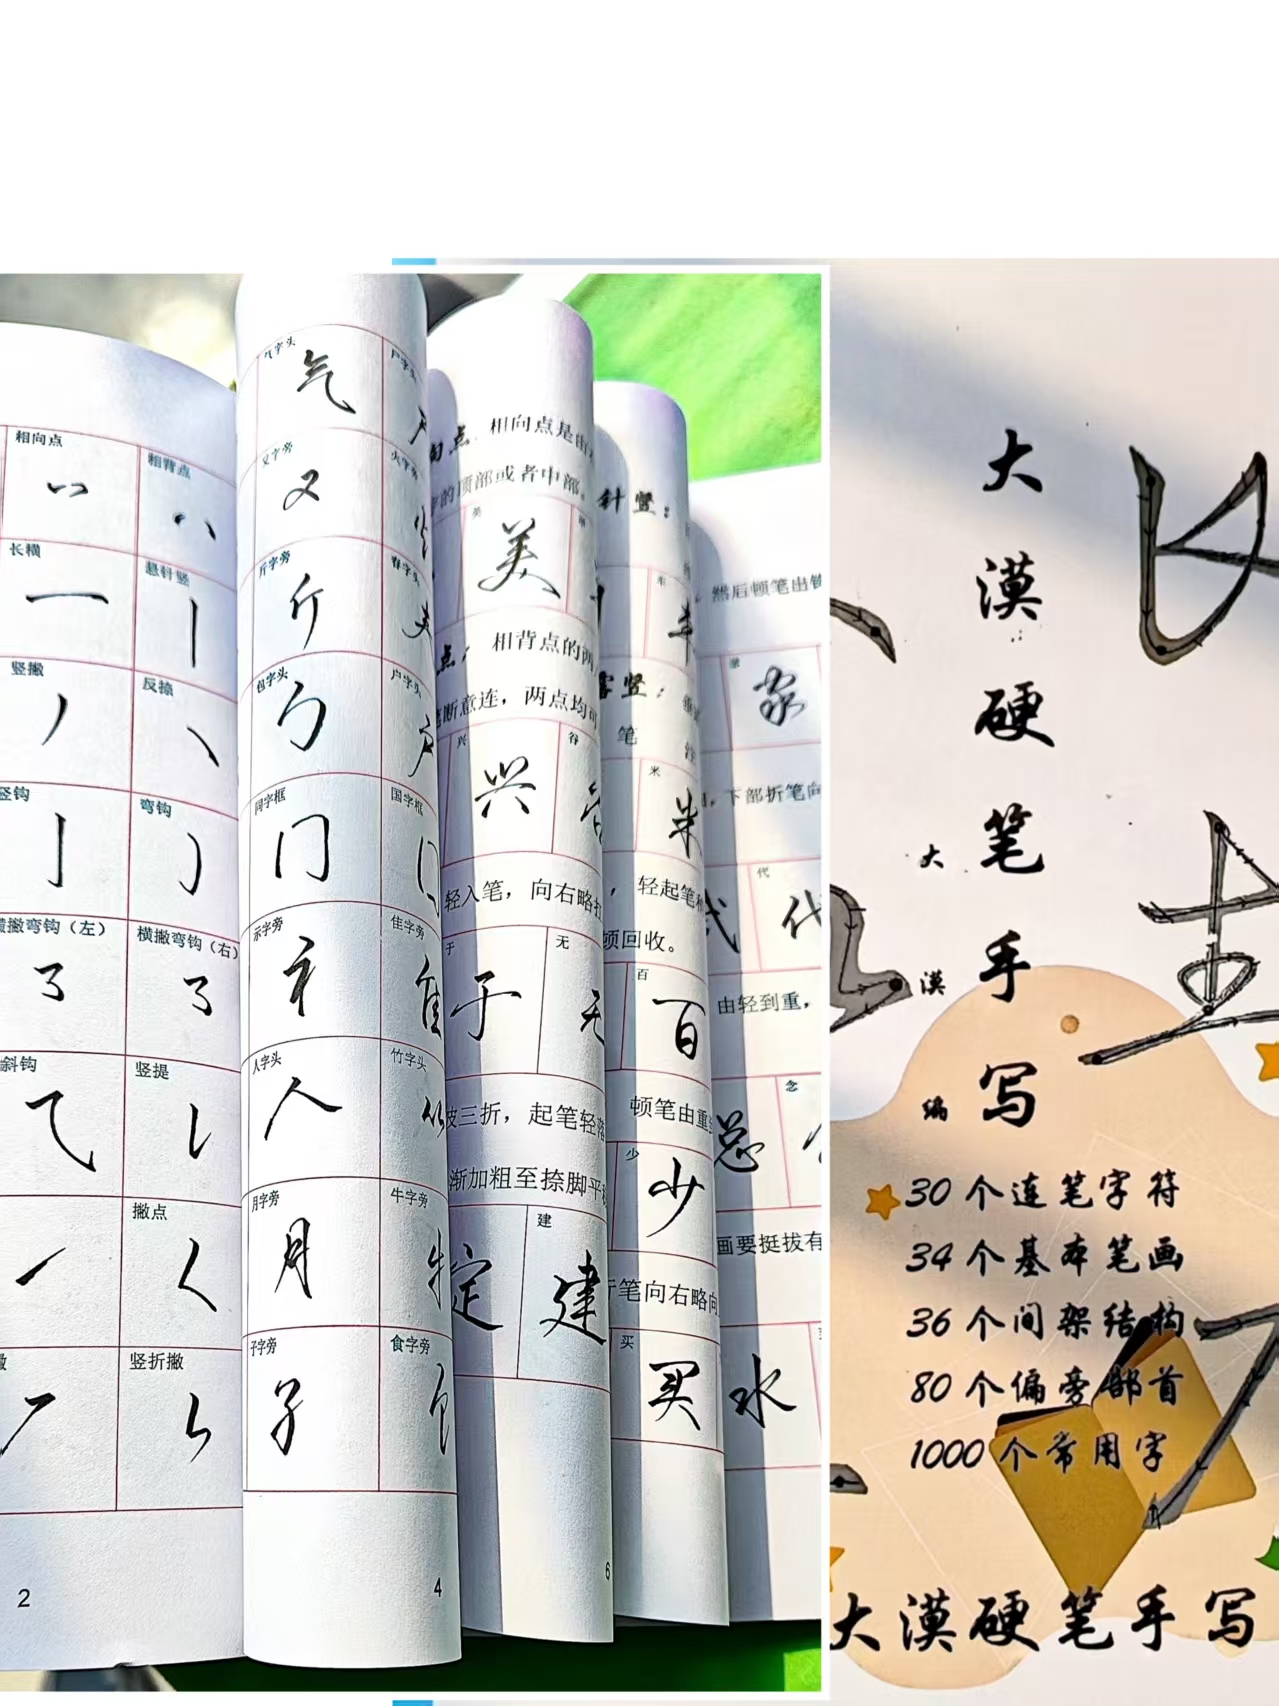 相向点
相背点
长横
悬针竖
竖撇
反捺
竖钩
弯钩
横撇弯钩（左）
横撇弯钩（右）
斜钩
竖提
撇点
竖折撇
2
气字头
气
户字头
又字旁
又
火字旁
斤字旁
斤
春字头
包字头
户字头
同字框
国字框
示字旁
隹字旁
人字头
人
竹字头
月字旁
月
牛字旁
子字旁
子
食字旁
4
向点
相向点是由
字的顶部或者中部。
美
美
点：
相背点的两
笔断意连，两点均可
兴
谷
兴
轻入笔，向右略扛
于
无
于
无
波三折，起笔轻落
渐加粗至捺脚平
建
定
建
6
针竖：
笔
米
米
，轻起笔
顿回收。
百
百
顿笔由重
少
少
行笔向右略向
买
买
然后顿笔出钩
家
下部折笔向
代
代
由轻到重，
念
总
画要挺拔有
水
大漠硬笔手写
大漠编
30个连笔字符
34个基本笔画
36个间架结构
80个偏旁部首
1000个常用字
大漠硬笔手写